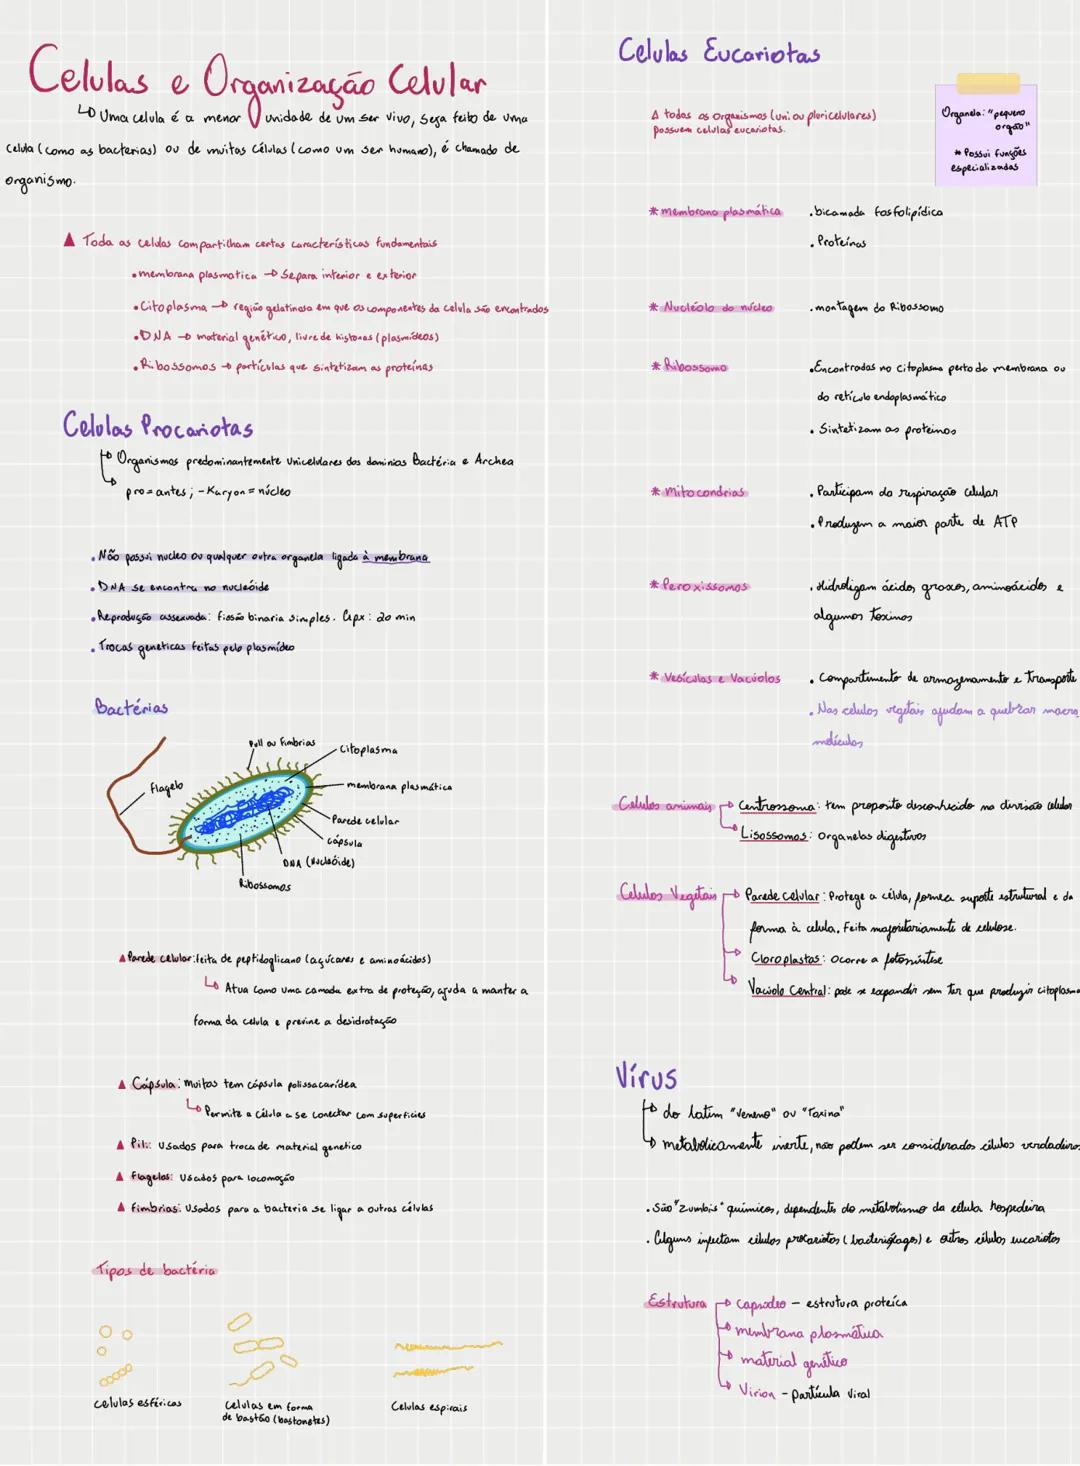 Celulas e Organização Celular
↳ Uma celula é a menor unidade de um ser vivo, seja feito de uma
celula (como as bacterias) ou de muitas células (como um ser humano), é chamado de
organismo.
▲ Toda as celulas compartilham certas características fundamentais
• membrana plasmatica → Separa interior e exterior
• Citoplasma → região gelatinosa em que os componentes da celula são encontrados
• DNA → material genético, livre de histonas (plasmídeos)
• Ribossomos → partículas que sintetizam as proteínas
Celulas Procariotas
↳ Organismos predominantemente unicelulares dos dominios Bactéria e Archea
↳ pro = antes ; - Karyon = núcleo
• Não possui nucleo ou qualquer outra organela ligada à membrana
• DNA se encontra no nucleóide
• Reprodução assexuada: fissão binaria simples. Apx: 20 min
• Trocas geneticas feitas pelo plasmídeo
Bactérias
Pili ou Fimbrias
Citoplasma
Flagelo
membrana plasmática
Parede celular
cápsula
DNA (Nucleóide)
Ribossomos
▲ Parede celular: feita de peptidoglicano (açúcares e aminoácidos)
↳ Atua como uma camada extra de proteção, ajuda a manter a
forma da celula e previne a desidratação
▲ Cápsula: muitas tem cápsula polissacarídea
↳ Permite a célula a se conectar com superficies
▲ Pili: usados para troca de material genetico
▲ flagelos: Usados para locomoção
▲ fimbrias: Usados para a bacteria se ligar a outras células
Tipos de bactéria
celulas esféricas
Celulas em forma
de bastão (bastonetes)
Celulas espirais
Celulas Eucariotas
Δ todas os organismos (uni. ou pluricelulares)
possuem celulas eucariotas.
Organela: "pequeno
orgão"
* Possui funções
especializadas
* membrana plasmática
• bicamada fosfolipídica
• Proteínas
* Nucléolo do núcleo
• montagem do Ribossomo
* Ribossomo
• Encontradas no citoplasma perto da membrana ou
do retículo endoplasmático
• Sintetizam as proteínas
* Mitocondrias
• Participam da respiração celular
• Produzem a maior parte de ATP
* Peroxissomos
• Hidroligam ácidos graxos, aminoácidos e
algumas toxinas
* Vesículas e Vacúolos
• Compartimento de armazenamento e transporte
• Nas celulas vegetais ajudam a quebrar macro
moléculas
Celulas animais
→ Centrossoma: tem proposito desconhecido na divisão celular
→ Lisossomos: Organelas digestivas
Celulas Vegetais
→ Parede celular: Protege a célula, fornece suporte estrutural e da
forma à celula. Feita majoritariamente de celulose.
→ Cloroplastos: Ocorre a fotossíntese
→ Vacúolo Central: pode se expandir sem ter que produzir citoplasma
Vírus
↳ do latim "veneno" ou "Toxina"
↳ metabolicamente inerte, não podem ser considerados células verdadeiras
• São "Zumbis" químicos, dependentes do metabolismo da célula hospedeira
• Alguns infectam células procariotas (bacteriófagos) e outros células eucariotas
Estrutura
→ capsodeo - estrutura proteíca
→ membrana plasmática
→ material genético
→ Virion - partícula viral